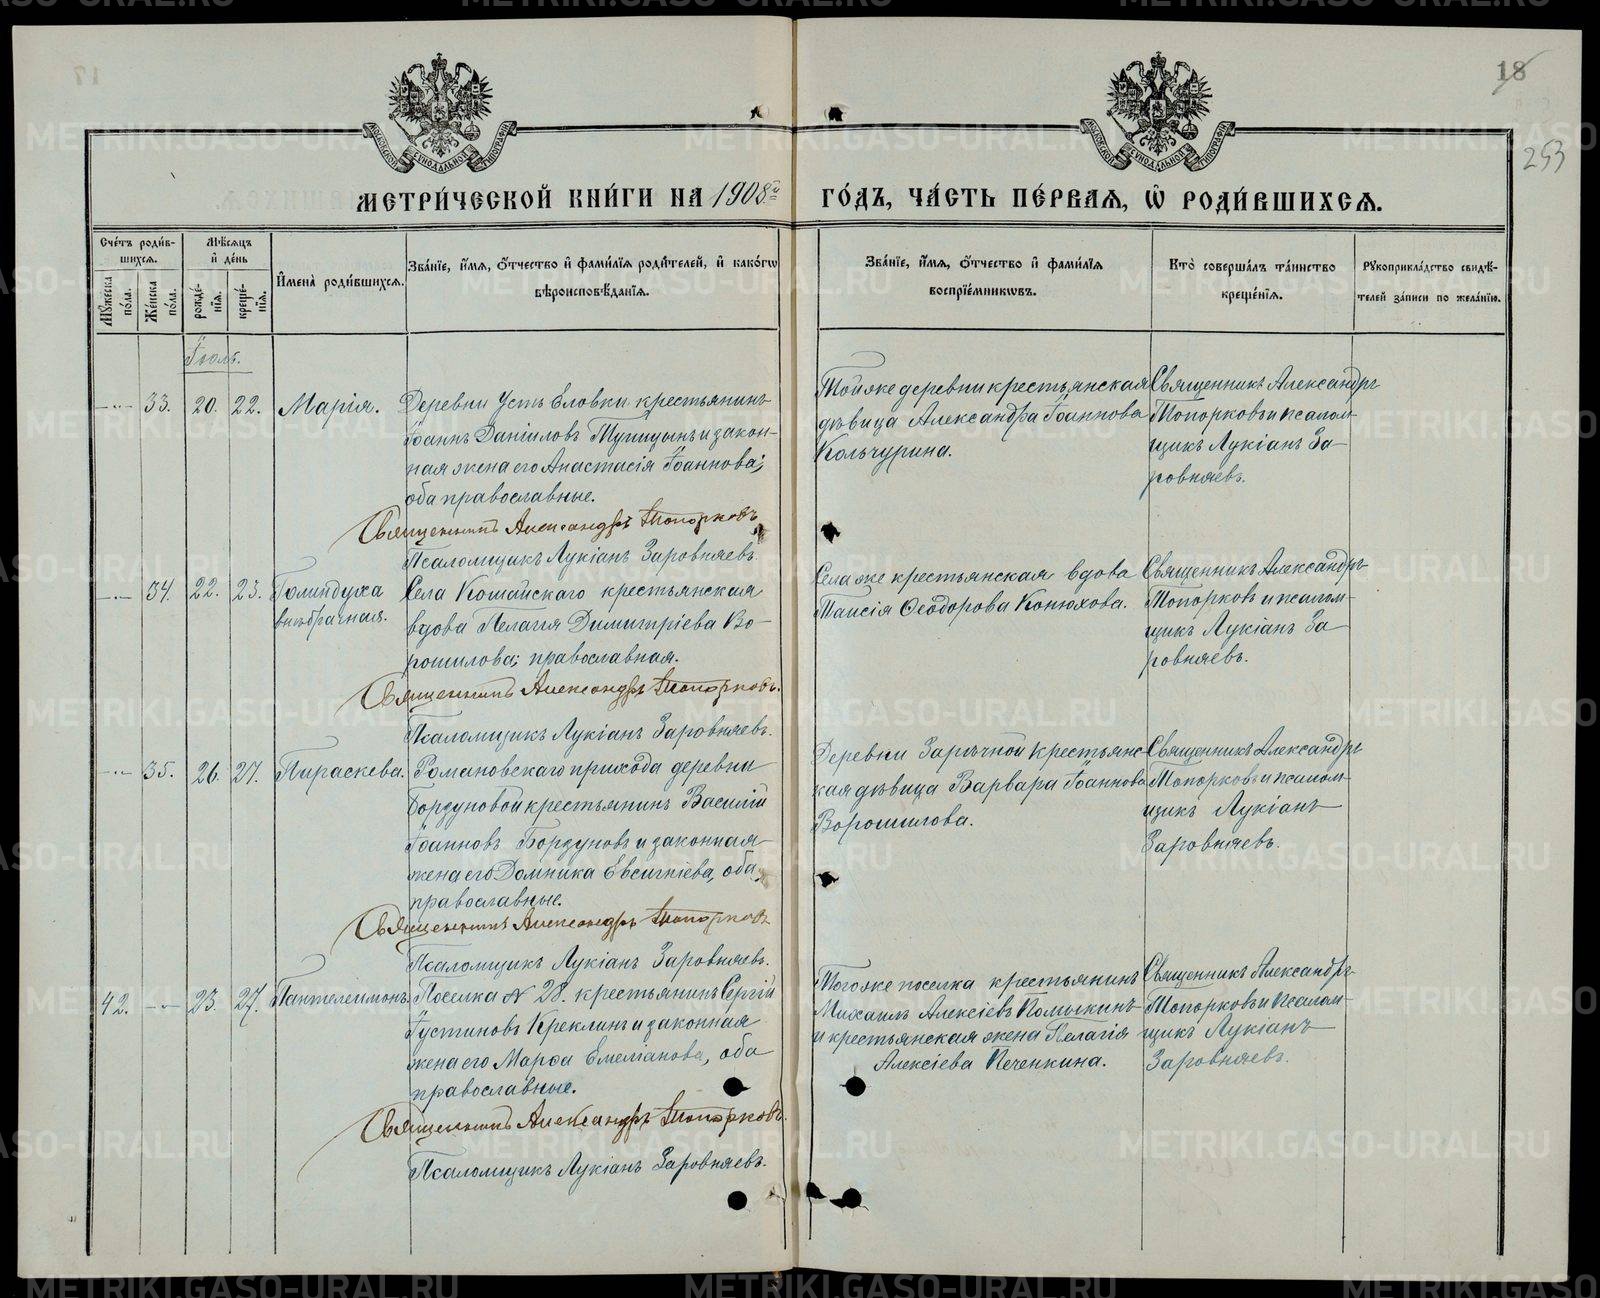 18
253
МОСКОВСКОЙ СѴНОДАЛЬНОЙ ТИПОГРАФІИ
МОСКОВСКОЙ СѴНОДАЛЬНОЙ ТИПОГРАФІИ
МЕТРИ́ЧЕСКОЙ КНИ́ГИ НА 1908й ГО́ДЪ, ЧА́СТЬ ПЕ́РВАѦ, Ѽ РОДИ́ВШИХСѦ.
Сче́тъ роди́в-
шихсѧ.
Мѣ́сѧцъ
и҆ де́нь
Мꙋ́жеска
по́ла.
Же́нска
по́ла.
рожде́-
нїѧ.
креще́-
нїѧ.
И҆мена̀ роди́вшихсѧ.
Зва́нїе, и҆́мѧ, ѻ҆́тчество и҆ фами́лїѧ роди́телей, и҆ како́гѡ
вѣроисповѣ́данїѧ.
Зва́нїе, и҆́мѧ, ѻ҆́тчество и҆ фами́лїѧ
воспрїе́мникѡвъ.
Кто̀ соверша́лъ та́инство
креще́нїѧ.
Рꙋкоприкла́дство свидѣ́-
телей за́писи по жела́нїю.
Іюль.
33. 20. 22. Марія.
Деревни Усть Еловки крестьянинъ
Іоаннъ Даніиловъ Тупицынъ и закон-
ная жена его Анастасія Іоаннова;
оба православные.
Священникъ Александръ Топорковъ
Псаломщикъ Лукіанъ Заровняевъ.
Той же деревни крестьянская
дѣвица Александра Іоаннова
Кольчурина.
Священникъ Александръ
Топорковъ и псалом-
щикъ Лукіанъ За-
ровняевъ.
34. 22. 23. Голиндуха
внѣбрачная.
Села Кошайскаго крестьянская
вдова Пелагія Димитріева Во-
рошилова; православная.
Священникъ Александръ Топорковъ.
Псаломщикъ Лукіанъ Заровняевъ.
Села же крестьянская вдова
Таисія Ѳеодорова Конюхова.
Священникъ Александръ
Топорковъ и псалом-
щикъ Лукіанъ За
ровняевъ.
35. 26. 27. Параскева.
Романовскаго прихода деревни
Бордуновой крестьянинъ Василій
Іоанновъ Бордуновъ и законная
жена его Домника Евсигніева, оба
православные.
Священникъ Александръ Топорковъ
Псаломщикъ Лукіанъ Заровняевъ.
Деревни Зарѣчной крестьянс-
кая дѣвица Варвара Іоаннова
Ворошилова.
Священникъ Александръ
Топорковъ и псалом-
щикъ Лукіанъ
Заровняевъ.
42. 23. 27. Пантелеимонъ.
Поселка № 28. крестьянинъ Сергій
Іустиновъ Креклинъ и законная
жена его Марѳа Емеліанова, оба
православные.
Священникъ Александръ Топорковъ.
Псаломщикъ Лукіанъ Заровняевъ.
Того же поселка крестьянинъ
Михаилъ Алексіевъ Помыкинъ
и крестьянская жена Пелагія
Алексіева Печенкина.
Священникъ Александръ
Топорковъ и псалом-
щикъ Лукіанъ
Заровняевъ.
METRIKI.GASO-URAL.RU